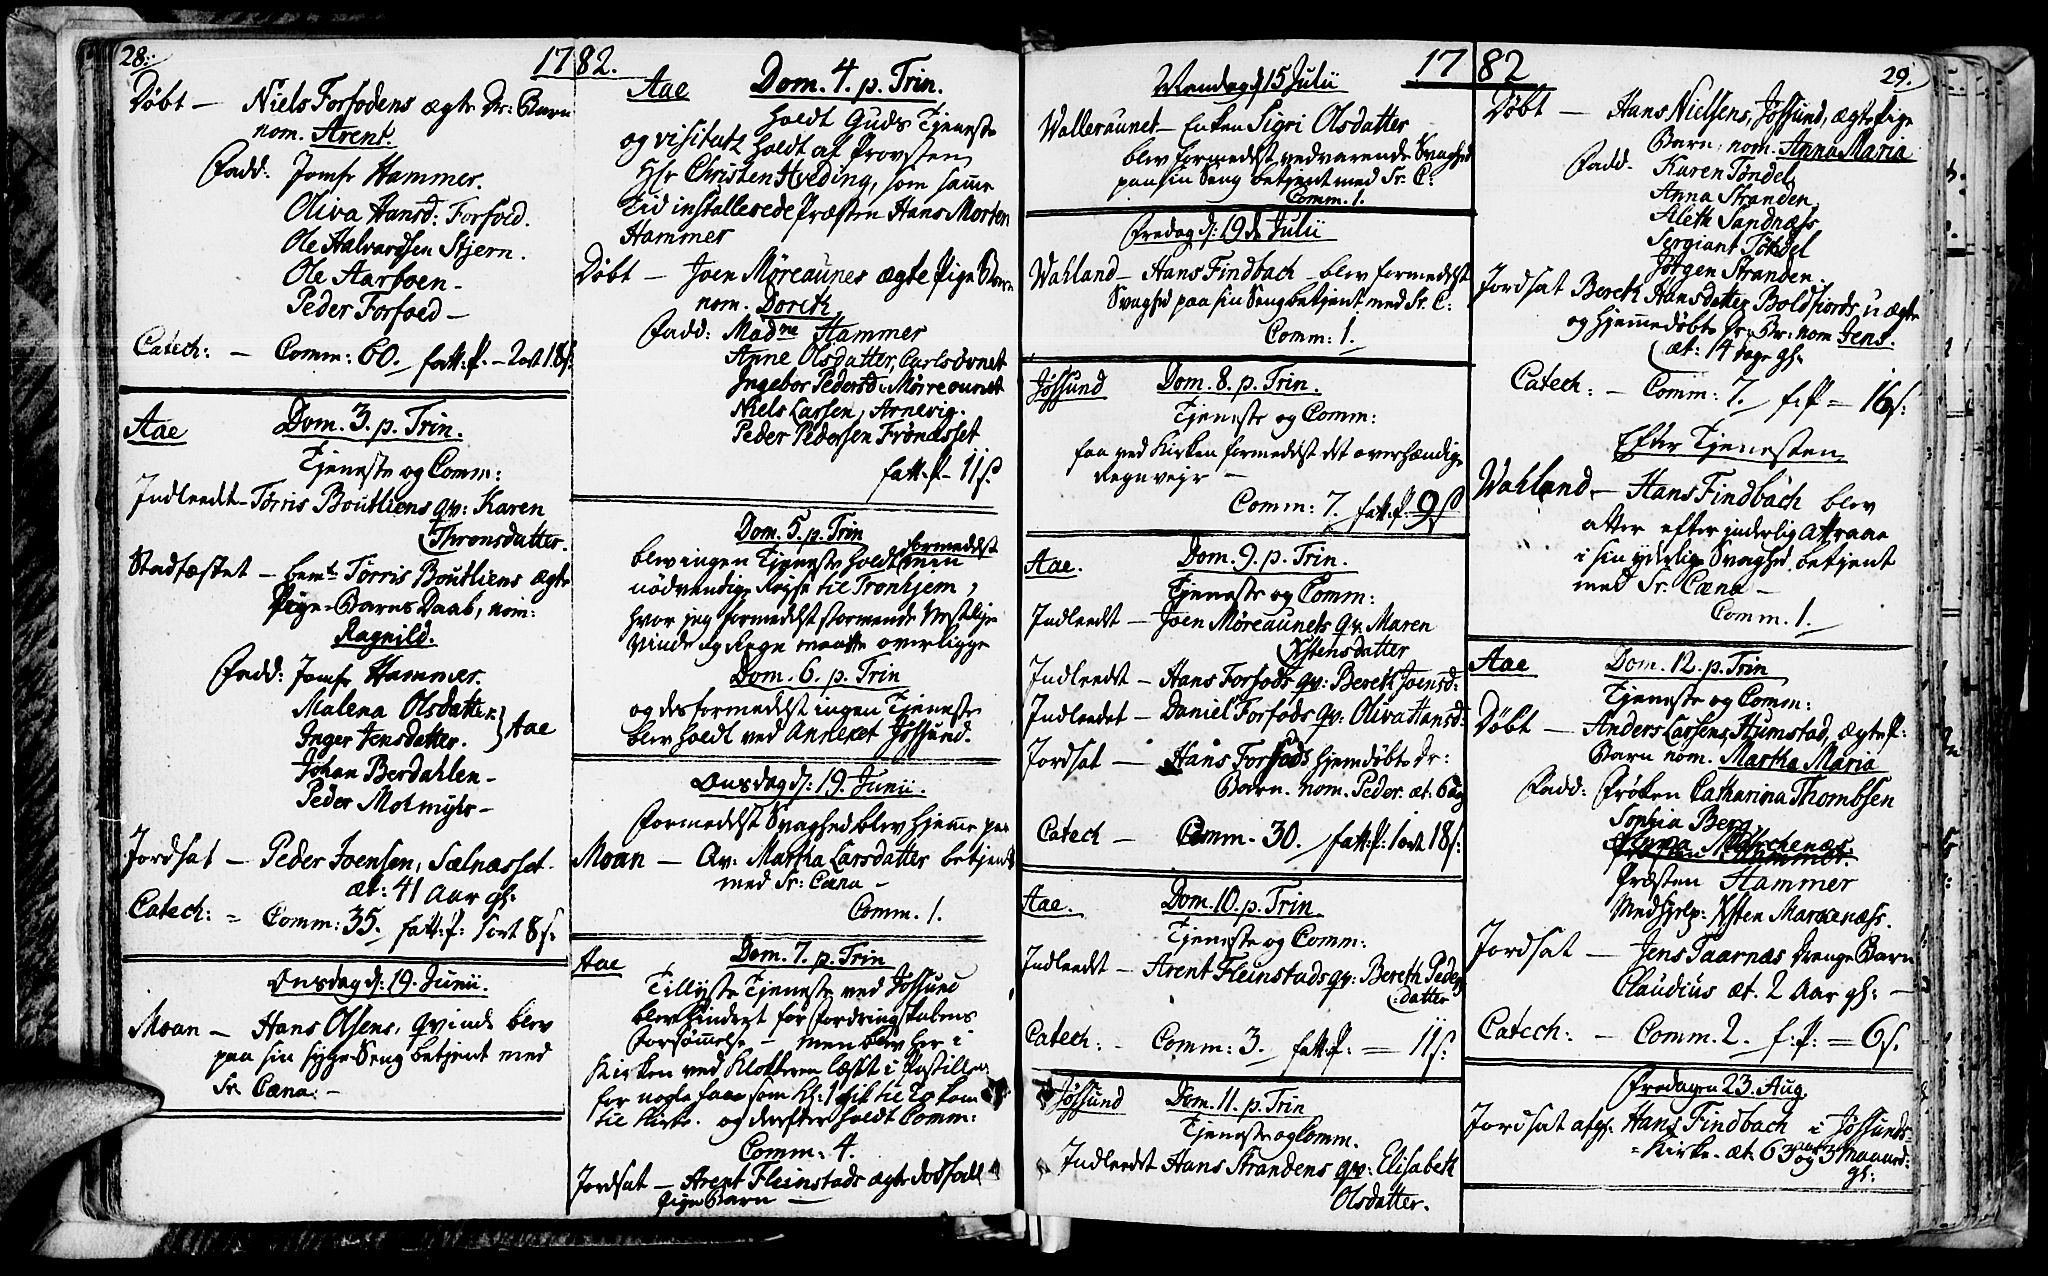 28.
1782.
Døbt — Niels Forfodens ægte Dr: Barn
nom. Arent.
Fadd: Jomfr Hammer.
Oliva Hansd: Forfod.
Ole Halvardsen Stjern.
Ole Aarboen —
Peder Forfod —
Catech: — Comm: 60. fatt: P. — 2 ort 18 s.
Aae Dom. 3. p. Trin.
Tjeneste og Comm:
Indleedt — Tørris Boutliens qv: Karen
Thronsdatter.
Stadfæstet — bemte Tørris Boutliens ægte
Pige-Barns Daab, nom:
Ragnild.
Fadd: Jomfr Hammer.
Malena Olsdatter
Inger Jensdatter. } Aae
Johan Berdahlen —
Peder Molmyhr —
Jordsat — Peder Joensen, Sælnæsset
æt: 41 Aar gl.
Catech: = Comm: 35. fatt: P: 1 ort 8 s.
Onsdag d: 19. Junii.
Moan — Hans Olsens, qvinde blev
paa sin syge-Seng betjent med
Sr. Cæna. —
Aae Dom. 4. p. Trin.
holdt Guds Tjeneste
og visitatz holdt af Provsten
Hr Christen Hveding, som samme
Tid installerede Præsten Hans Morten
Hammer
Døbt — Joen Møreaunes ægte Pige Barn
nom. Doreth
Fadd: Madme Hammer
Anne Olsdatter, Carlsøvnet
Ingebor Pedersd: Mørreaunet
Niels Larsen, Arnevig.
Peder Pedersen Frønæsset
fatt: P — 11 s.
Dom. 5. p. Trin
blev ingen Tjeneste holdt formedelst min
nødvendige Rejse til Tronhjem,
hvor jeg formedelst stormende Vestlige
Vinde og Regn maatte overligge
Dom. 6. p. Trin
og desformedelst ingen Tjeneste
blev holdt ved Annexet Jøssund.
Onsdag d: 19. Junii.
Formedelst Svaghed blev hjemme paa
Moan — Qv: Martha Larsdatter betjent
med Sr: Cæna —
Comm. 1.
Aae Dom. 7. p. Trin
Tillyste Tjeneste ved Jøssund
blev hindret for fordringskabens
Forsømmelse — men blev her i
Kirken ved Klokkeren læst i Postillen
for nogle faae som Kl: 1 til 2 kom
til Kirke. og derefter holdt Comm:
Comm: 4.
Jordsat — Arent Fleinstads ægte dødfødt
Pige Barn —
1782
29.
Mandag d 15 Julii
Walleraunet — Enken Sigri Olsdatter
blev formedelst vedvarende Svaghed
paa sin Seng betjent med Sr: C:
Comm. 1.
Fredag d: 19 de Julii
Wahland — Hans Findbach — blev formedelst
Svaghed paa sin Seng betjent med Sr. C:
Comm: 1.
Jøssund Dom. 8. p. Trin.
Tjeneste og Comm:
faa ved Kirken formedelst det overhændige
Regnvejr —
Comm: 7. fatt: P: 9 s
Aae. Dom. 9. p. Trin.
Tjeneste og Comm:
Indleedt — Joen Møreaunets qv. Maren
Østensdatter
Indleedt — Hans Forfods qv: Bereth Joensd:
Indleedet — Daniel Forfods qv: Oliva Hansd:
Jordsat — Hans Forfods hjemdøbte Dr:
Barn. nom. Peder. æt: 6 Dag
Catech — Comm. 30. fatt: P: 1 ort 18 s:
Aae. Dom. 10. p. Trin
Tjeneste og Comm:
Indleedt — Arent Fleinstads qv: Bereth Peders
datter
Catech: — Comm: 3. fatt: P: = 11 s:
Jøssund Dom. 11. p. Trin
Tjeneste og Comm.
Indleedt Hans Strandens qv: Elisabeth
Olsdatter.
Døbt — Hans Nielsens, Jøssund, ægte Pige
Barn, nom. Anna Maria
Fadd. Karen Tøndel
Anna Stranden,
Aleth Sandnæss
Sergiant Tøndel
Jørgen Stranden.
Jordsat Bereth Hansdatter Boldfiords uægte
og hjemmedøbte Dr: Br: nom Jens.
æt: 14 dage gl.
Catech: — Comm: 7. f: P = 16 s:
Efter Tjenesten
Wahland — Hans Findbach blev
atter efter inderlig Attraae
i sin yderlige Svaghed betjent
med Sr: Cæna —
Comm. 1.
Aae Dom. 12. p. Trin
Tjeneste og Comm:
Døbt — Anders Larsens Humstad, ægte P:
Barn nom. Martha Maria
Fadd: Frøken Catharina Thombsen
Sophia Berg
Præsten Hammer
Medhjelp: Østen Marcenæss.
Jordsat — Jens Taarnæs Drenge Barn
Claudius æt. 2 Aar gl: —
Catech: — Comm. 2. f: P: = 6 s.
Fredagen 23. Aug.
Jordsat afgl. Hans Findbach i Jøssunds-
Kirke. æt: 63 aar og 3 Maaned:
gl: